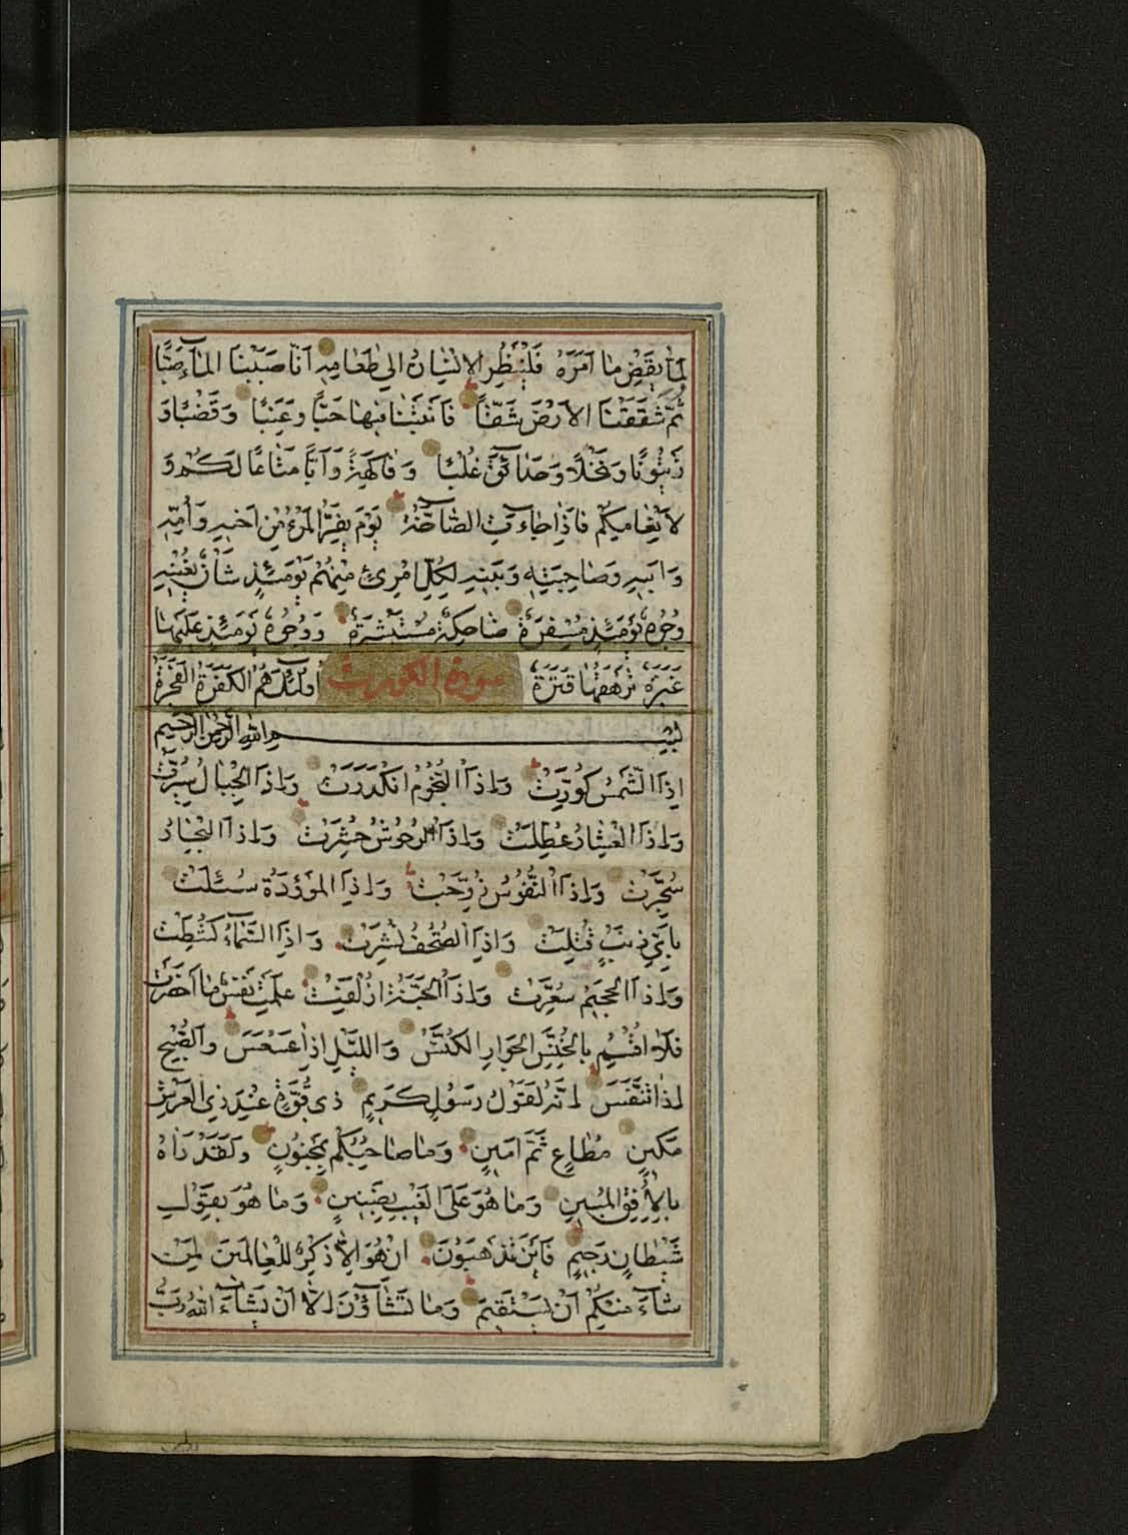 لَمَّا يَقْضِ مَا اَمَرَهُ فَلْيَنْظُرِ الاِنْسَانُ اِلٰي طَعَامِهٖ اَنَّا صَبَبْنَا الْمَآءَ صَبًّا
ثُمَّ شَقَقْنَا الاَرْضَ شَقًّا فَاَنْبَتْنَا فِيهَا حَبًّا وَعِنَبًا وَقَضْبًا وَ
زَيْتُونًا وَنَخْلًا وَحَدَآئِقَ غُلْبًا وَفَاكِهَةً وَاَبًّا مَتَاعًا لَكُمْ وَ
لاَنْعَامِكُمْ فَاِذَا جَآءَتِ الصَّآخَّةُ يَوْمَ يَفِرُّ الْمَرْءُ مِنْ اَخِيهِ وَاُمِّهٖ
وَاَبِيهِ وَصَاحِبَتِهٖ وَبَنِيهِ لِكُلِّ امْرِئٍ مِنْهُمْ يَوْمَئِذٍ شَاْنٌ يُغْنِيهِ
وُجُوهٌ يَوْمَئِذٍ مُسْفِرَةٌ ضَاحِكَةٌ مُسْتَبْشِرَةٌ وَوُجُوهٌ يَوْمَئِذٍ عَلَيْهَا
غَبَرَةٌ تَرْهَقُهَا قَتَرَةٌ سورة الكورت اُولٰئِكَ هُمُ الْكَفَرَةُ الْفَجَرَةُ
بِسْمِ اللّٰهِ الرَّحْمٰنِ الرَّحِيمِ
اِذَا الشَّمْسُ كُوِّرَتْ وَاِذَا النُّجُومُ انْكَدَرَتْ وَاِذَا الْجِبَالُ سُيِّرَتْ
وَاِذَا الْعِشَارُ عُطِّلَتْ وَاِذَا الْوُحُوشُ حُشِرَتْ وَاِذَا الْبِحَارُ
سُجِّرَتْ وَاِذَا النُّفُوسُ زُوِّجَتْ وَاِذَا الْمَوْؤُدَةُ سُئِلَتْ
بِاَيِّ ذَنْبٍ قُتِلَتْ وَاِذَا الصُّحُفُ نُشِرَتْ وَاِذَا السَّمَآءُ كُشِطَتْ
وَاِذَا الْجَحِيمُ سُعِّرَتْ وَاِذَا الْجَنَّةُ اُزْلِفَتْ عَلِمَتْ نَفْسٌ مَا اَحْضَرَتْ
فَلَآ اُقْسِمُ بِالْخُنَّسِ الْجَوَارِ الْكُنَّسِ وَالَّيْلِ اِذَا عَسْعَسَ وَالصُّبْحِ
اِذَا تَنَفَّسَ اِنَّهُ لَقَوْلُ رَسُولٍ كَرِيمٍ ذِي قُوَّةٍ عِنْدَ ذِي الْعَرْشِ
مَكِينٍ مُطَاعٍ ثَمَّ اَمِينٍ وَمَا صَاحِبُكُمْ بِمَجْنُونٍ وَلَقَدْ رَاٰهُ
بِالْاُفُقِ الْمُبِينِ وَمَا هُوَ عَلَى الْغَيْبِ بِضَنِينٍ وَمَا هُوَ بِقَوْلِ
شَيْطَانٍ رَجِيمٍ فَاَيْنَ تَذْهَبُونَ اِنْ هُوَ اِلَّا ذِكْرٌ لِلْعَالَمِينَ لِمَنْ
شَآءَ مِنْكُمْ اَنْ يَسْتَقِيمَ وَمَا تَشَآؤُنَ اِلَّا اَنْ يَشَآءَ اللّٰهُ رَبُّ